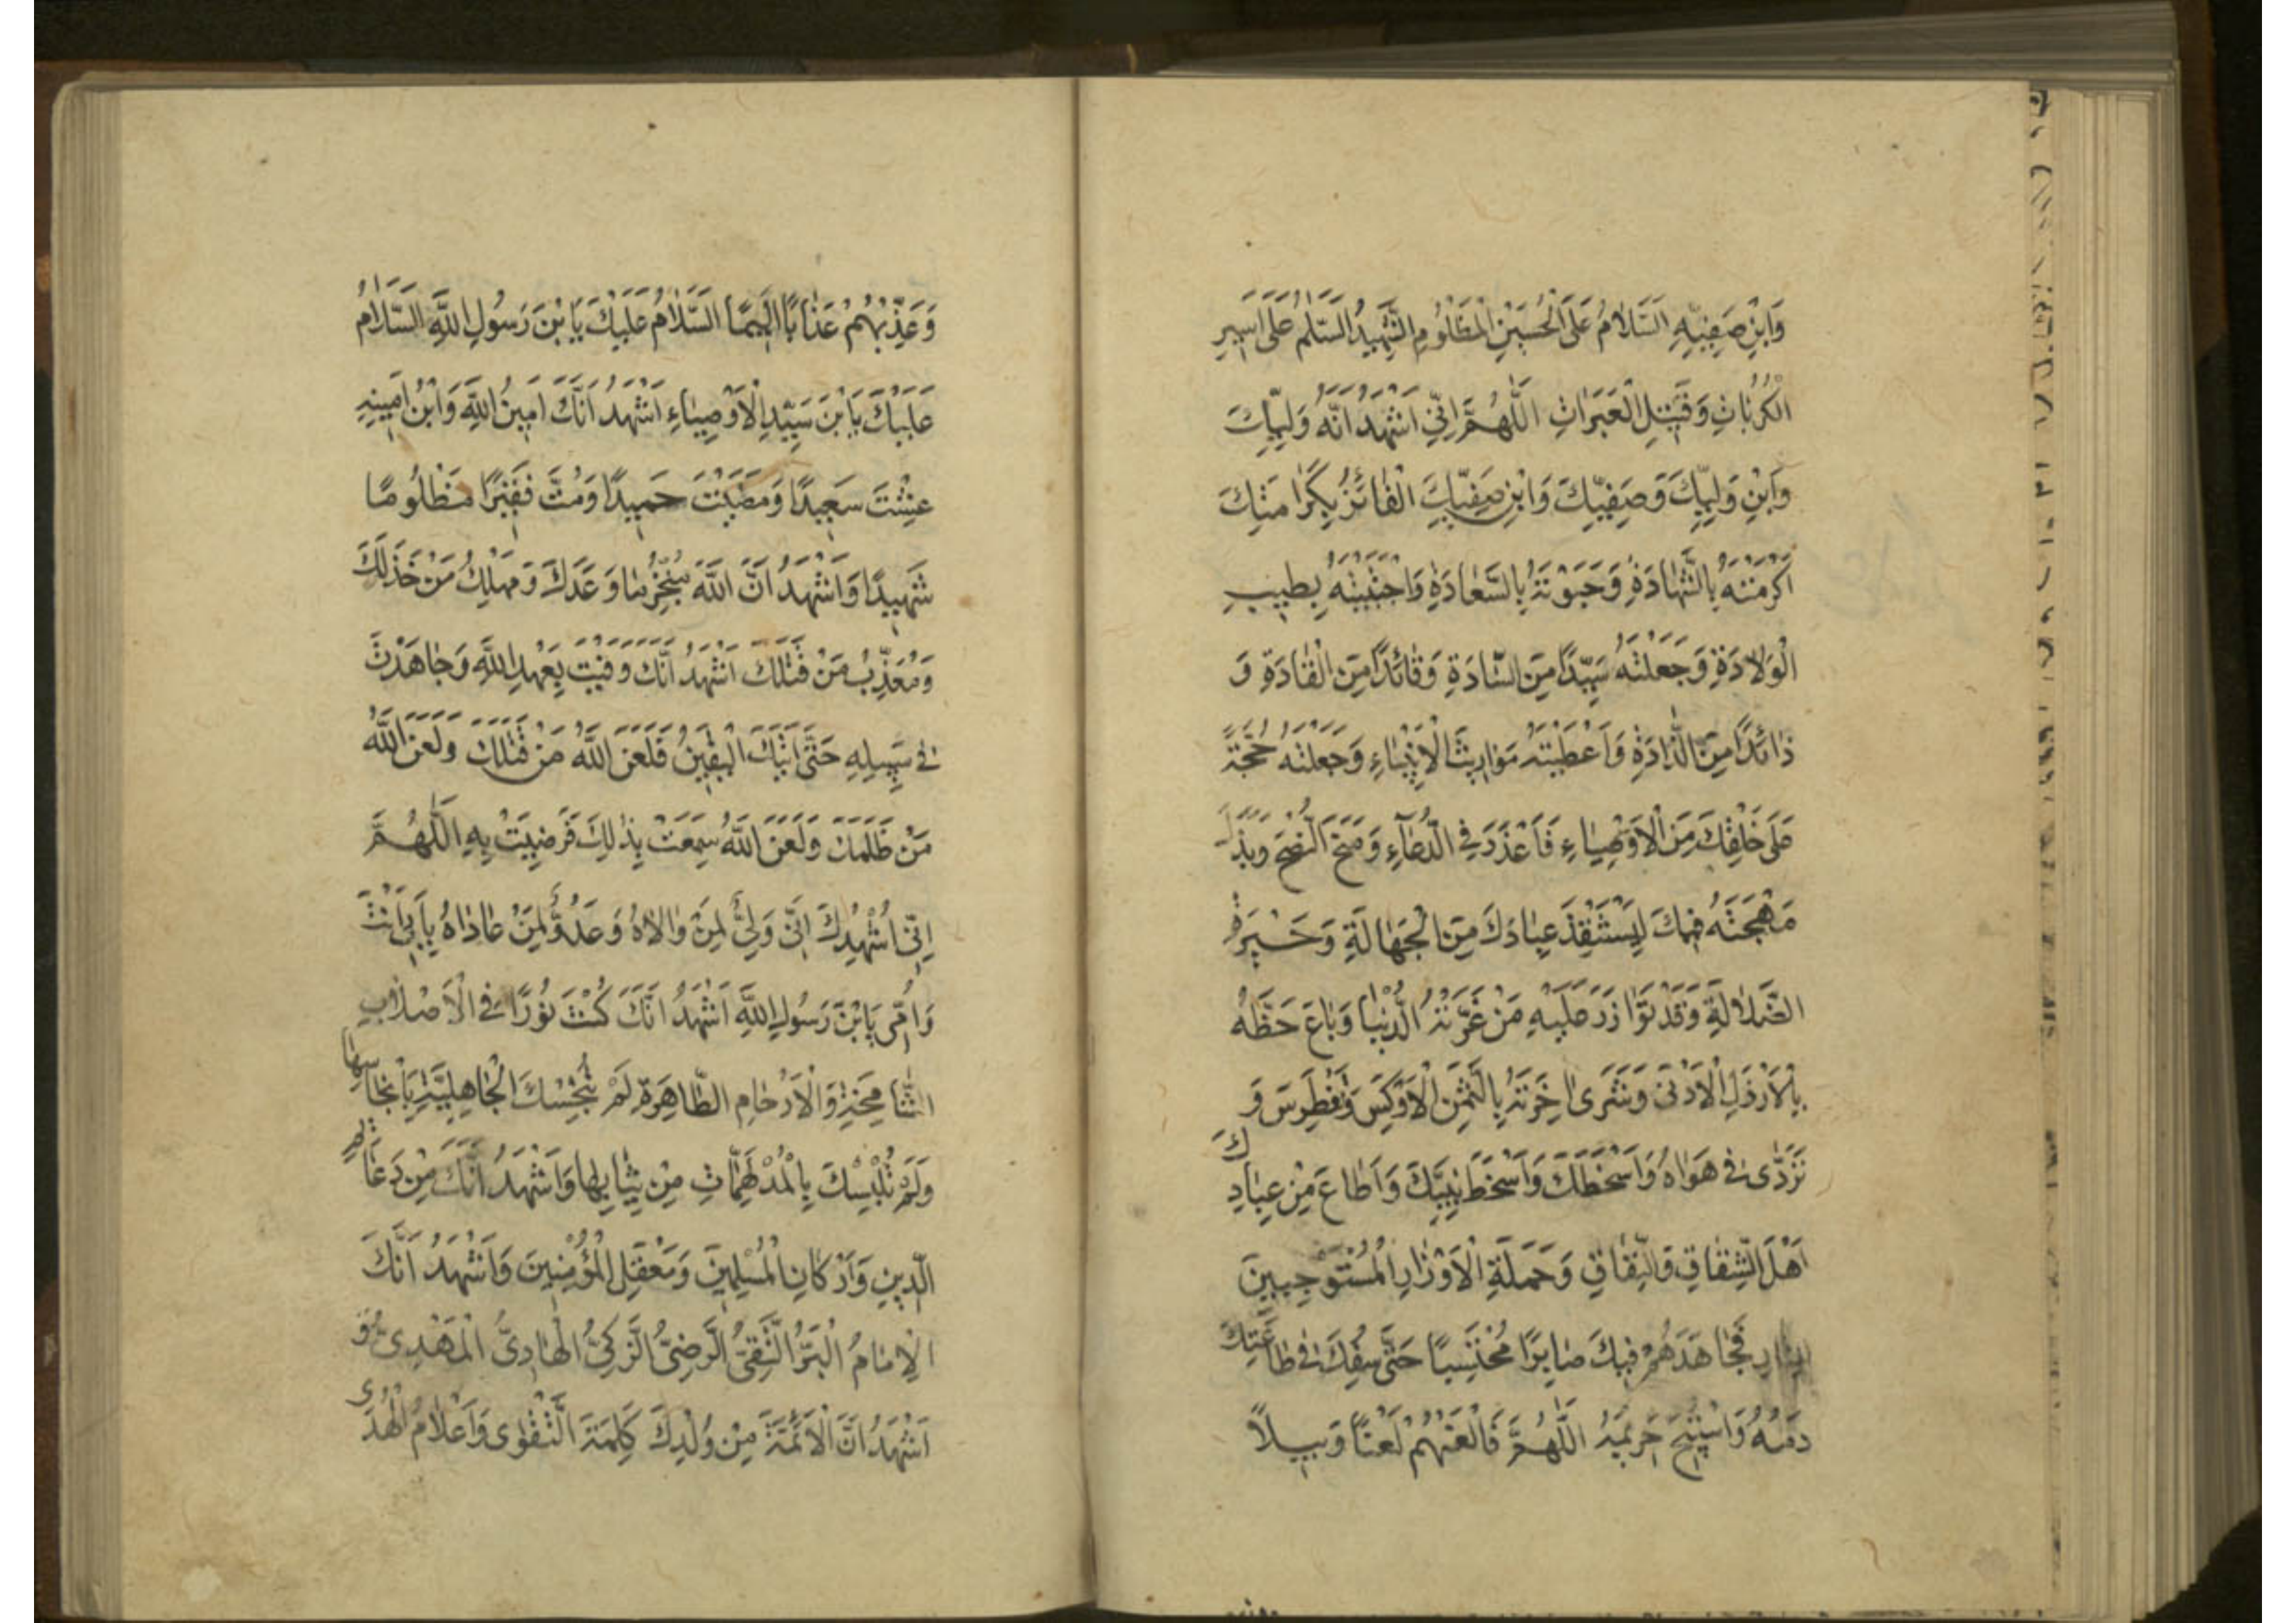 وَابْنِ صَفِيِّهِ السَّلَامُ عَلَى الْحُسَيْنِ الْمَظْلُومِ الشَّهِيدِ السَّلَمُ عَلَى اَسِيرِ
الْكُرُبَاتِ وَقَتِيلِ الْعَبَرَاتِ اَللّٰهُمَّ اِنِّي اَشْهَدُ اَنَّهُ وَلِيُّكَ
وَابْنُ وَلِيِّكَ وَصَفِيُّكَ وَابْنُ صَفِيِّكَ الْفَائِزُ بِكَرَامَتِكَ
اَكْرَمْتَهُ بِالشَّهَادَةِ وَحَبَوْتَهُ بِالسَّعَادَةِ وَاجْتَبَيْتَهُ بِطِيبِ
الْوِلَادَةِ وَجَعَلْتَهُ سَيِّدًا مِنَ السَّادَةِ وَقَائِدًا مِنَ الْقَادَةِ وَ
ذَائِدًا مِنَ الذَّادَةِ وَاَعْطَيْتَهُ مَوَارِيثَ الْاَنْبِيَاءِ وَجَعَلْتَهُ حُجَّةً
عَلَى خَلْقِكَ مِنَ الْاَوْصِيَاءِ فَاَعْذَرَ فِي الدُّعَاءِ وَمَنَحَ النُّصْحَ وَبَذَلَ
مُهْجَتَهُ فِيكَ لِيَسْتَنْقِذَ عِبَادَكَ مِنَ الْجَهَالَةِ وَحَيْرَةِ
الضَّلَالَةِ وَقَدْ تَوَازَرَ عَلَيْهِ مَنْ غَرَّتْهُ الدُّنْيَا وَبَاعَ حَظَّهُ
بِالْاَرْذَلِ الْاَدْنَى وَشَرَى اٰخِرَتَهُ بِالثَّمَنِ الْاَوْكَسِ وَتَغَطْرَسَ وَ
تَرَدَّى فِي هَوَاهُ وَاَسْخَطَكَ وَاَسْخَطَ نَبِيَّكَ وَاَطَاعَ مِنْ عِبَادِكَ
اَهْلَ الشِّقَاقِ وَالنِّفَاقِ وَحَمَلَةَ الْاَوْزَارِ الْمُسْتَوْجِبِينَ
فَجَاهَدَهُمْ فِيكَ صَابِرًا مُحْتَسِبًا حَتَّى سُفِكَ فِي طَاعَتِكَ
دَمُهُ وَاسْتُبِيحَ حَرِيمُهُ اَللّٰهُمَّ فَالْعَنْهُمْ لَعْنًا وَبِيلًا
وَعَذِّبْهُمْ عَذَابًا اَلِيمًا السَّلَامُ عَلَيْكَ يَا بْنَ رَسُولِ اللّٰهِ السَّلَامُ
عَلَيْكَ يَا بْنَ سَيِّدِ الْاَوْصِيَاءِ اَشْهَدُ اَنَّكَ اَمِينُ اللّٰهِ وَابْنُ اَمِينِهِ
عِشْتَ سَعِيدًا وَمَضَيْتَ حَمِيدًا وَمُتَّ فَقِيرًا مَظْلُومًا
شَهِيدًا وَاَشْهَدُ اَنَّ اللّٰهَ مُنْجِزٌ مَا وَعَدَكَ وَمُهْلِكٌ مَنْ خَذَلَكَ
وَمُعَذِّبٌ مَنْ قَتَلَكَ اَشْهَدُ اَنَّكَ وَفَيْتَ بِعَهْدِ اللّٰهِ وَجَاهَدْتَ
فِي سَبِيلِهِ حَتَّى اَتٰيكَ الْيَقِينُ فَلَعَنَ اللّٰهُ مَنْ قَتَلَكَ وَلَعَنَ اللّٰهُ
مَنْ ظَلَمَكَ وَلَعَنَ اللّٰهُ سَمِعَتْ بِذٰلِكَ فَرَضِيَتْ بِهِ اَللّٰهُمَّ
اِنِّي اُشْهِدُكَ اَنِّي وَلِيٌّ لِمَنْ وَالَاهُ وَعَدُوٌّ لِمَنْ عَادَاهُ بِاَبِي اَنْتَ
وَاُمِّي يَا بْنَ رَسُولِ اللّٰهِ اَشْهَدُ اَنَّكَ كُنْتَ نُورًا فِي الْاَصْلَابِ
الشَّامِخَةِ وَالْاَرْحَامِ الطَّاهِرَةِ لَمْ تُنَجِّسْكَ الْجَاهِلِيَّةُ بِاَنْجَاسِهَا
وَلَمْ تُلْبِسْكَ بِالْمُدْلَهِمَّاتِ مِنْ ثِيَابِهَا وَاَشْهَدُ اَنَّكَ مِنْ دَعَائِمِ
الدِّينِ وَاَرْكَانِ الْمُسْلِمِينَ وَمَعْقِلِ الْمُؤْمِنِينَ وَاَشْهَدُ اَنَّكَ
الْاِمَامُ الْبَرُّ التَّقِيُّ الرَّضِيُّ الزَّكِيُّ الْهَادِيُّ الْمَهْدِيُّ وَ
اَشْهَدُ اَنَّ الْاَئِمَّةَ مِنْ وُلْدِكَ كَلِمَةُ التَّقْوٰى وَاَعْلَامُ الْهُدٰى